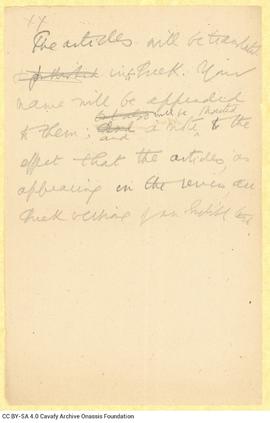 The articles will be translated
published in Greek. Your
name will be appended
but also will be inserted
to them; and a note, to the
and
effect that the articles, as
appearing in the review are
Greek versions of an English text
CC BY-SA 4.0 Cavafy Archive Onassis Foundation